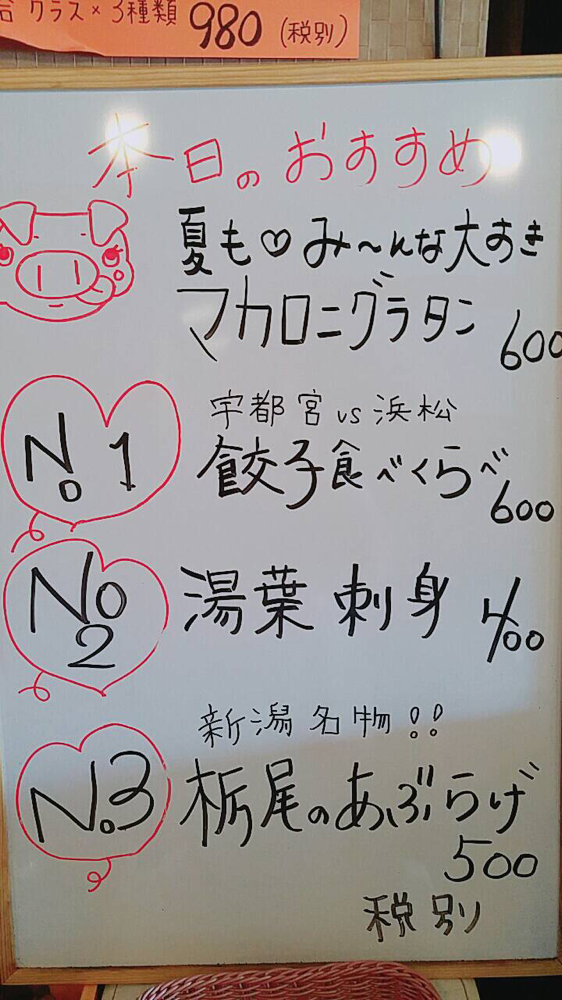 グラス×3種類 980 (税別)
本日のおすすめ
夏も♡み〜んな大すき
マカロニグラタン 600
宇都宮vs浜松
No 1 餃子食べくらべ 600
No 2 湯葉刺身 400
新潟名物!!
No.3 栃尾のあぶらげ
500
税別